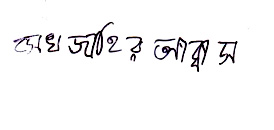 সেখ জাহির আব্বাস